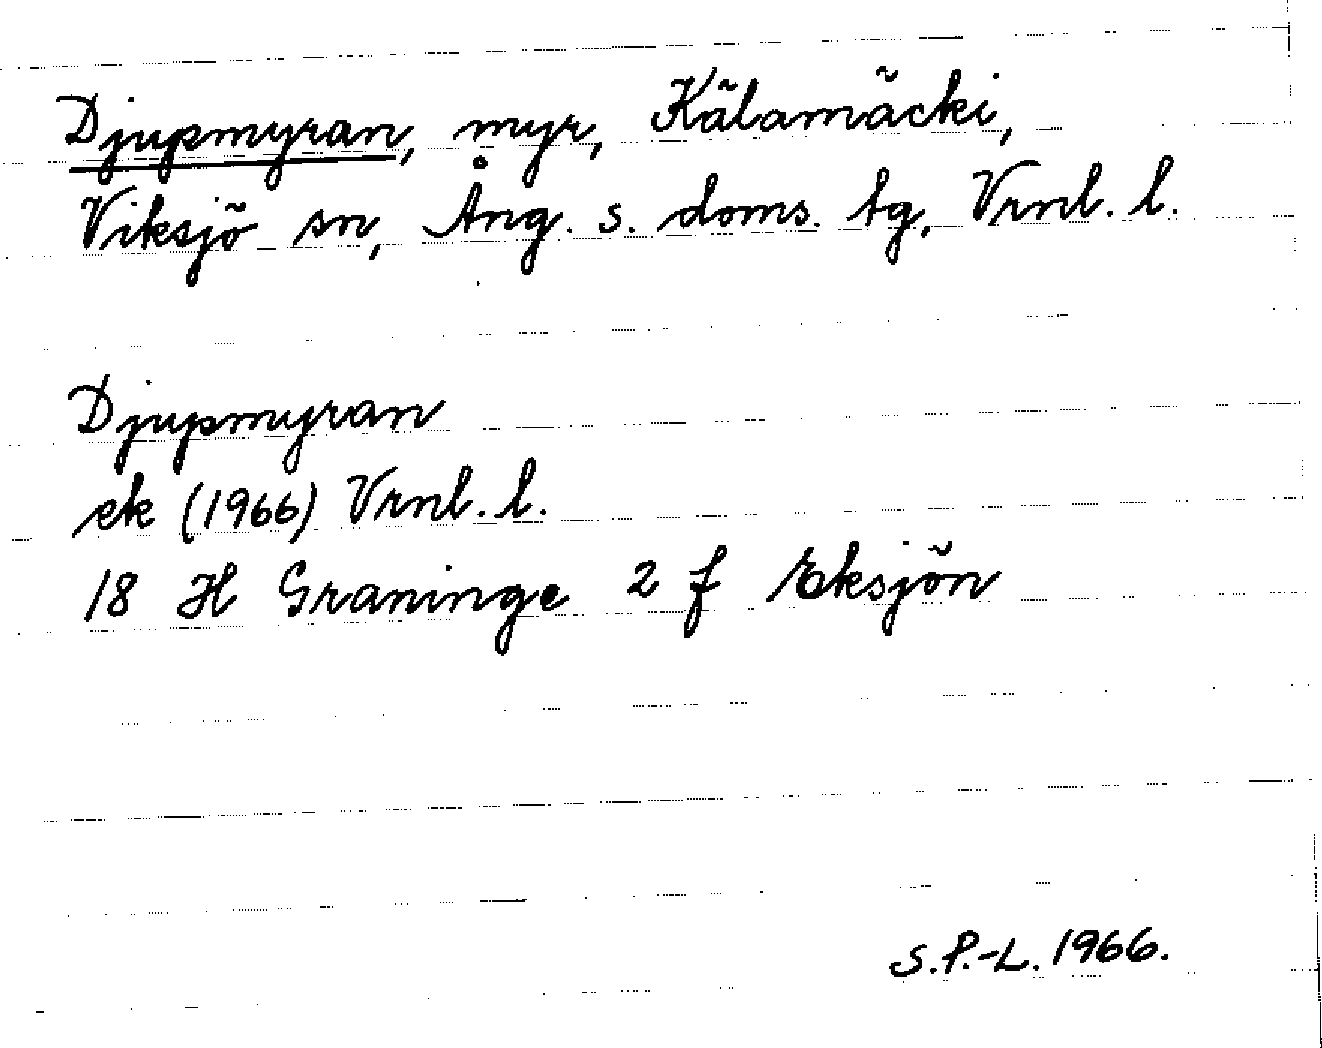 Djupmyran, myr, Kälamäcki,
Viksjö sn, Ång. s. doms. tg, Vrnl. l.
Djupmyran
ek (1966) Vrnl. l.
18 H Graninge 2 f Eksjön
S.P.-L. 1966.